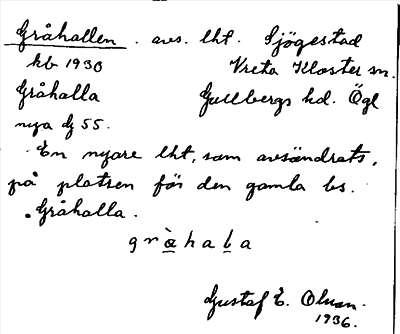 Gråhallen. avs. lht. Sjögestad
kb 1930 Vreta Kloster sn.
Gråhalla Gullbergs hd. Ögl
nya J 55.
En nyare lht, som avsöndrats,
på platsen för den gamla bs.
Gråhalla.
gràhaba
Gustaf E. Olsson.
1936.